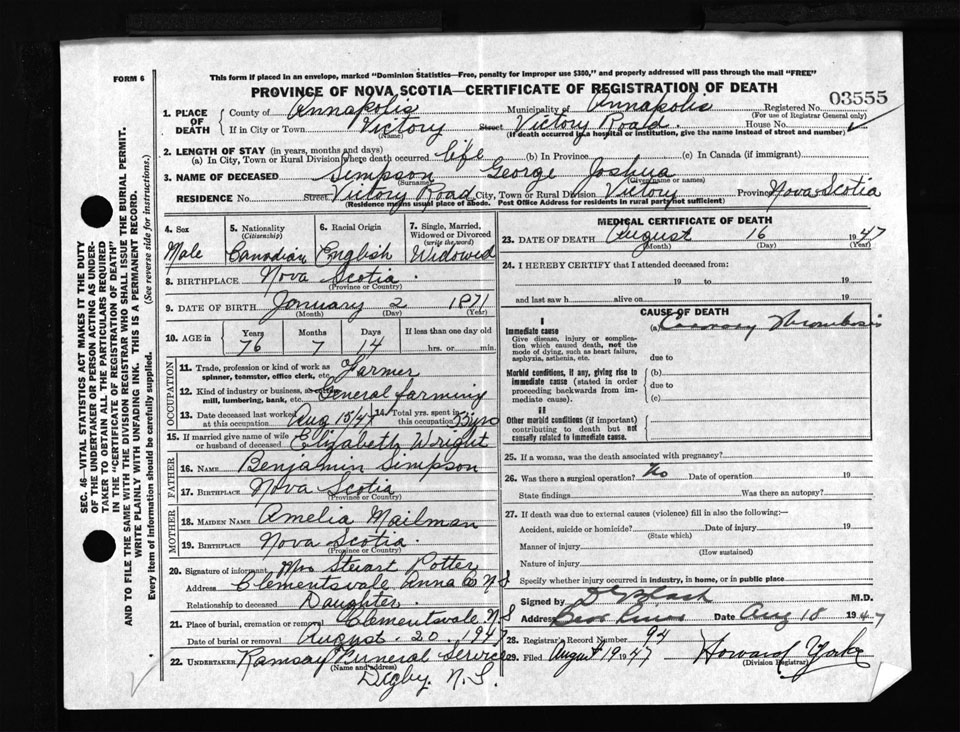 FORM 6
This form if placed in an envelope, marked "Dominion Statistics—Free, penalty for improper use $300," and properly addressed will pass through the mail "FREE"
PROVINCE OF NOVA SCOTIA—CERTIFICATE OF REGISTRATION OF DEATH
03555
1. PLACE OF DEATH County of Annapolis Municipality of Annapolis Registered No.
(For use of Registrar General only)
If in City or Town Victory Street Victory Road. House No.
(Name) (If death occurred in a hospital or institution, give the name instead of street and number)
2. LENGTH OF STAY (in years, months and days)
(a) In City, Town or Rural Division where death occurred life (b) In Province (c) In Canada (if immigrant)
3. NAME OF DECEASED Simpson George Joshua
(Surname) (Given name or names)
RESIDENCE No. Street Victory Road City, Town or Rural Division Victory Province Nova Scotia
(Residence means usual place of abode. Post Office Address for residents in rural parts not sufficient)
4. Sex
Male
5. Nationality
(Citizenship)
Canadian
6. Racial Origin
English
7. Single, Married, Widowed or Divorced
(write the word)
Widowed
8. BIRTHPLACE Nova Scotia.
(Province or Country)
9. DATE OF BIRTH January 2 1871
(Month) (Day) (Year)
10. AGE in Years Months Days If less than one day old
76 7 14 hrs. or min.
OCCUPATION
11. Trade, profession or kind of work as
spinner, teamster, office clerk, etc. Farmer
12. Kind of industry or business, as
mill, lumbering, bank, etc. General farming
13. Date deceased last worked Total yrs. spent in
at this occupation Aug 15/47 this occupation
15. If married give name of wife
or husband of deceased Elizabeth Wright
FATHER
16. NAME Benjamin Simpson
17. BIRTHPLACE Nova Scotia
(Province or Country)
MOTHER
18. MAIDEN NAME Amelia Mailman
19. BIRTHPLACE Nova Scotia.
(Province or Country)
20. Signature of informant Mrs Stewart Potter
Address Clementsvale Anna Co N S
Relationship to deceased Daughter.
21. Place of burial, cremation or removal Clementsvale N S
Date of burial or removal August. 20. 1947
22. UNDERTAKER Ramsay Funeral Service
(Name and address)
Digby. N. S.
MEDICAL CERTIFICATE OF DEATH
23. DATE OF DEATH August 16 1947
(Month) (Day) (Year)
24. I HEREBY CERTIFY that I attended deceased from:
19 to 19
and last saw h alive on 19
CAUSE OF DEATH
I
Immediate cause
Give disease, injury or complication which caused death, not the mode of dying, such as heart failure, asphyxia, asthenia, etc.
(a) Coronary Thrombosis
due to
Morbid conditions, if any, giving rise to immediate cause (stated in order proceeding backwards from immediate cause).
(b)
due to
(c)
II
Other morbid conditions (if important) contributing to death but not causally related to immediate cause.
25. If a woman, was the death associated with pregnancy?
26. Was there a surgical operation? No Date of operation 19
State findings Was there an autopsy?
27. If death was due to external causes (violence) fill in also the following:—
Accident, suicide or homicide? Date of injury 19
(State which)
Manner of injury
(How sustained)
Nature of injury
Specify whether injury occurred in industry, in home, or in public place
Signed by M.D.
Address Bear River Date Aug 18 1947
28. Registrar's Record Number 94
29. Filed August 19 1947 Howard Yorke
(Division Registrar)
SEC. 46—VITAL STATISTICS ACT MAKES IT THE DUTY
OF THE UNDERTAKER OR PERSON ACTING AS UNDERTAKER
TO OBTAIN ALL THE PARTICULARS REQUIRED
IN THE "CERTIFICATE OF REGISTRATION OF DEATH"
AND TO FILE THE SAME WITH THE DIVISION REGISTRAR WHO SHALL ISSUE THE BURIAL PERMIT.
WRITE PLAINLY WITH UNFADING INK. THIS IS A PERMANENT RECORD.
Every item of information should be carefully supplied. (See reverse side for instructions.)